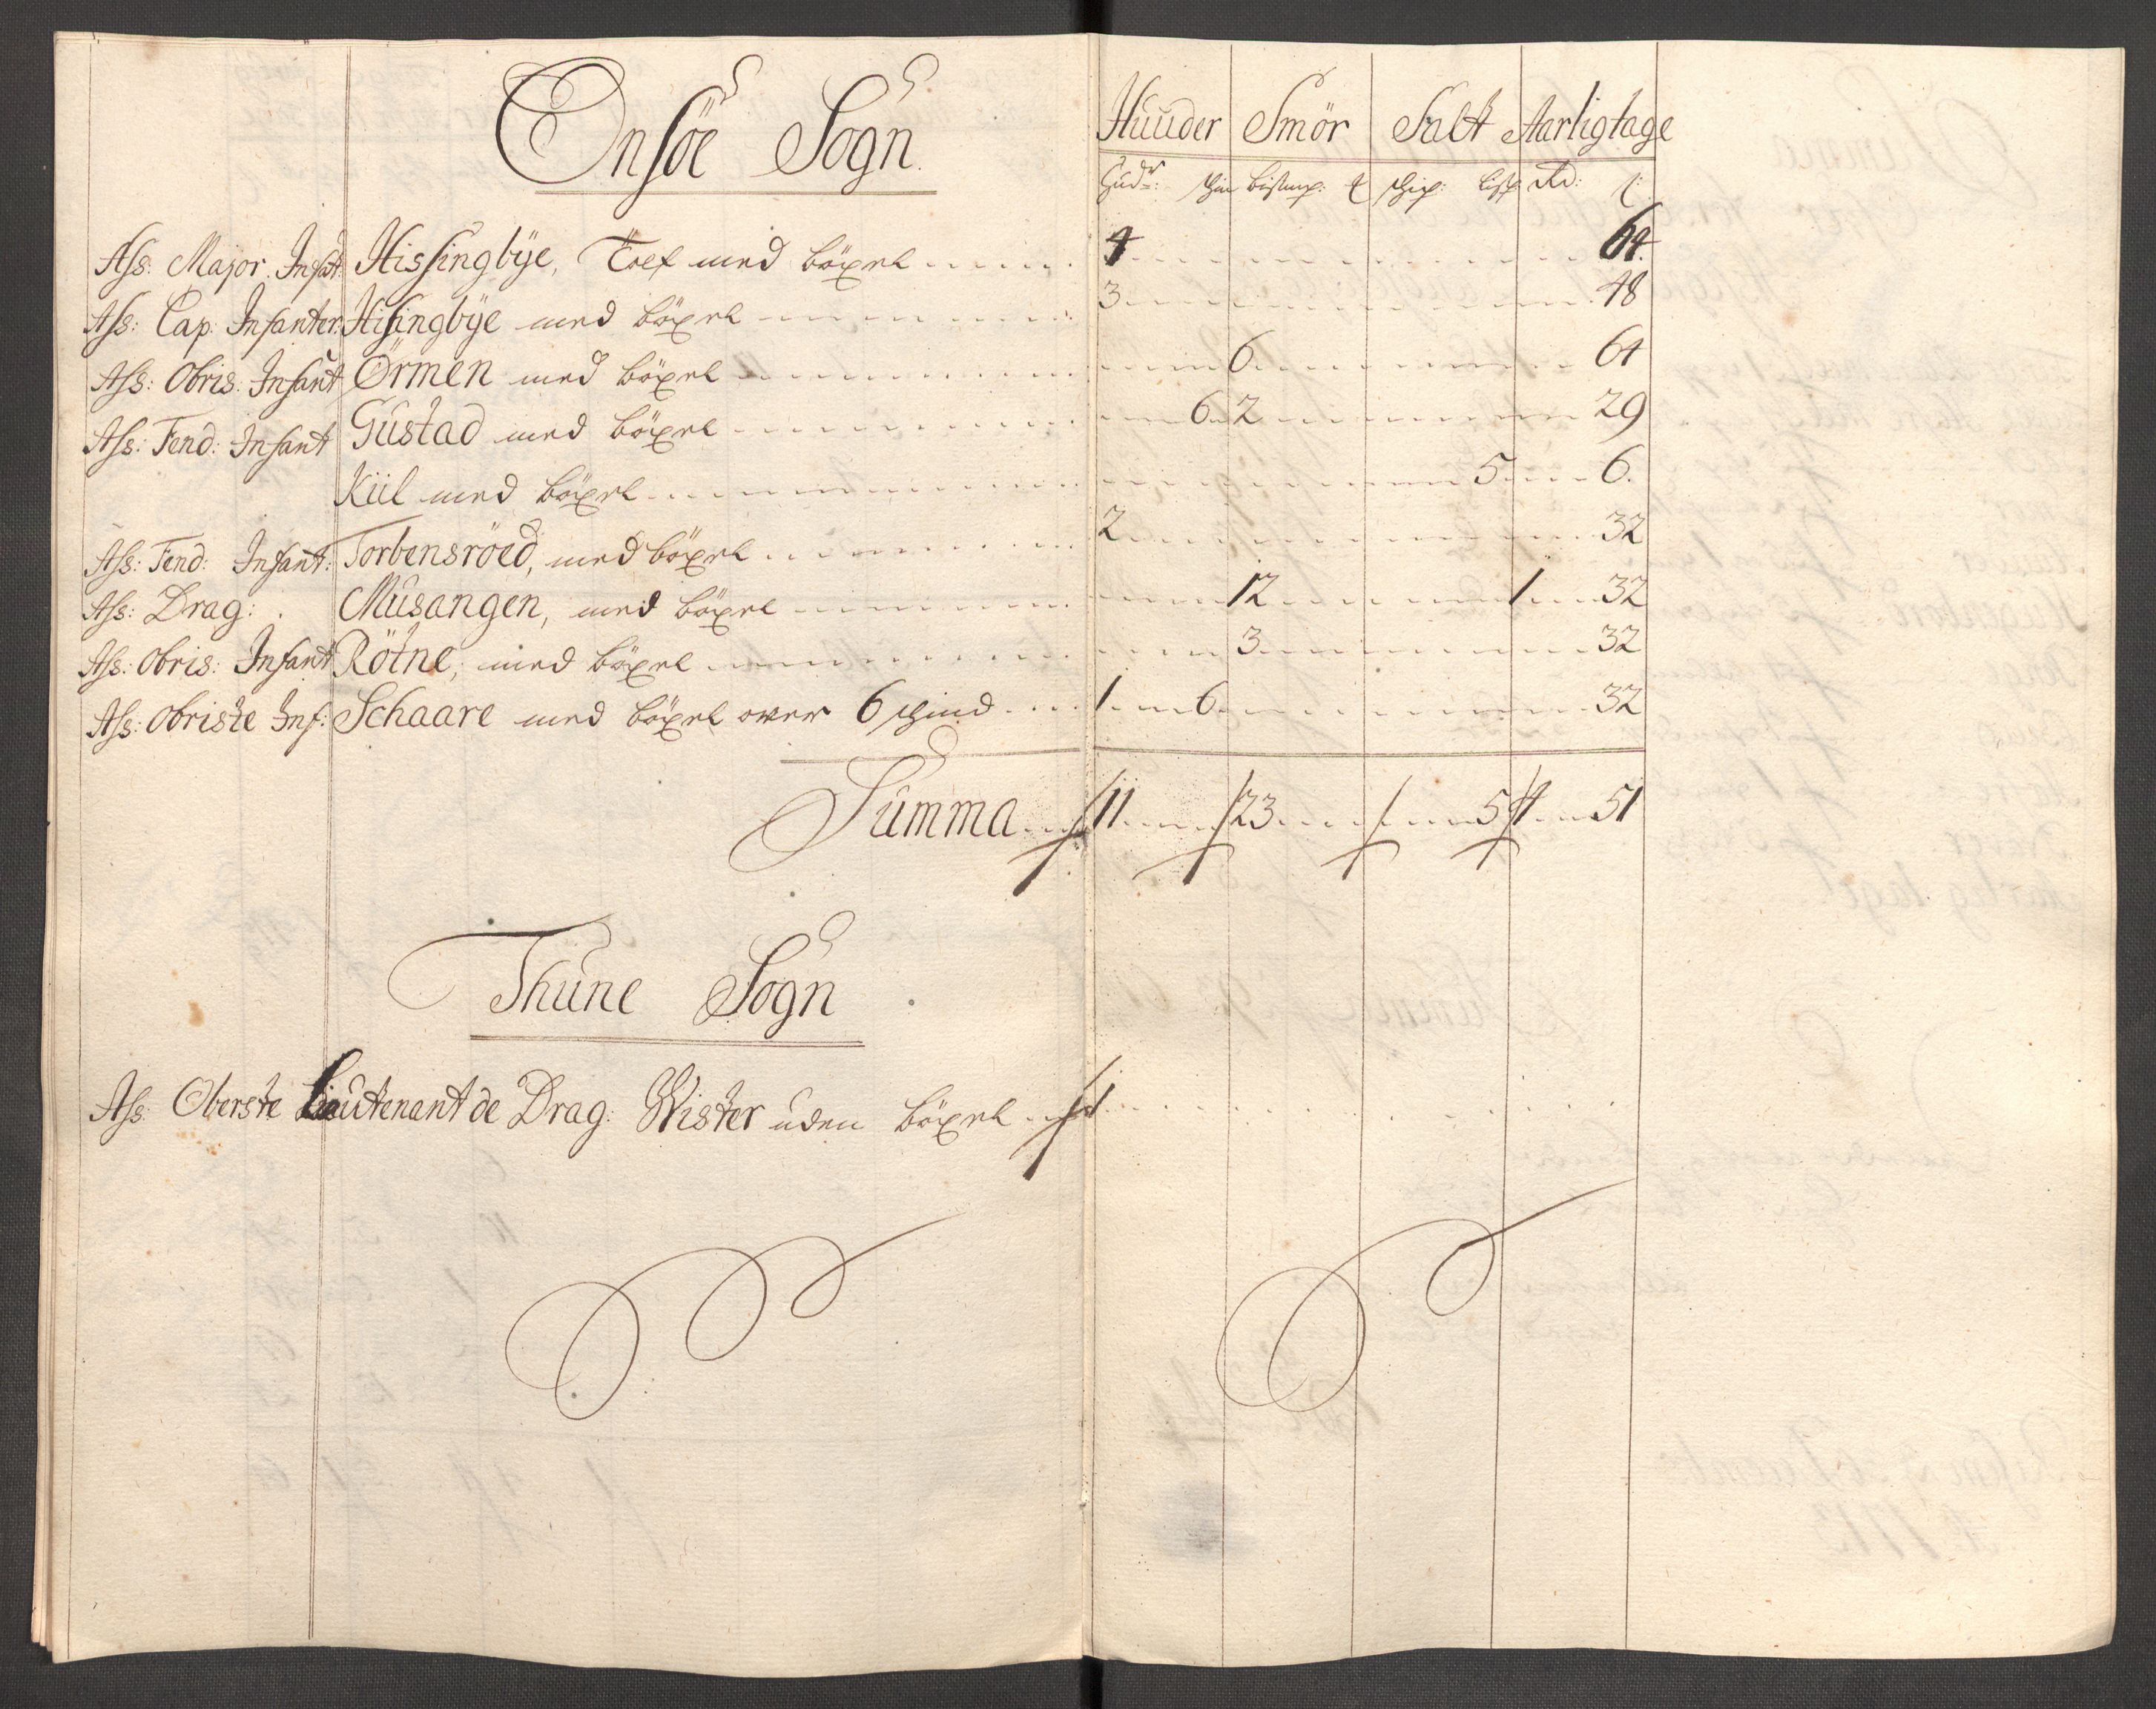 Onsöe Sogn.
Huuder Smör Salt Aarligtage
Hudr: Bismp: Rd:
Ass: Major Infat: Hissingbÿe, Toef med böxel 4 64.
Ass: Cap: Infanter: Hisingbÿe med böxel 3 48
Ass: Obris: Infant Örmen med böxel 6 64
Ass: Fend: Infant Gustad med böxel 6 2 29
Kiil med böxel 5 6.
Ass: Fend: Infant: Torbensröed, med böxel 2 32
Ass: Drag: Musangen, med böxel 12 1 32
Ass: Obris: Infant Rötne, med böxel 3 32
Ass: Obriste Inf: Schaare med böxel over 6 schind 1 6 32
Summa 11 23 5 4 51
Thune Sogn
Ass: Oberste Lieutenant de Drag: Wister uden böxel 1